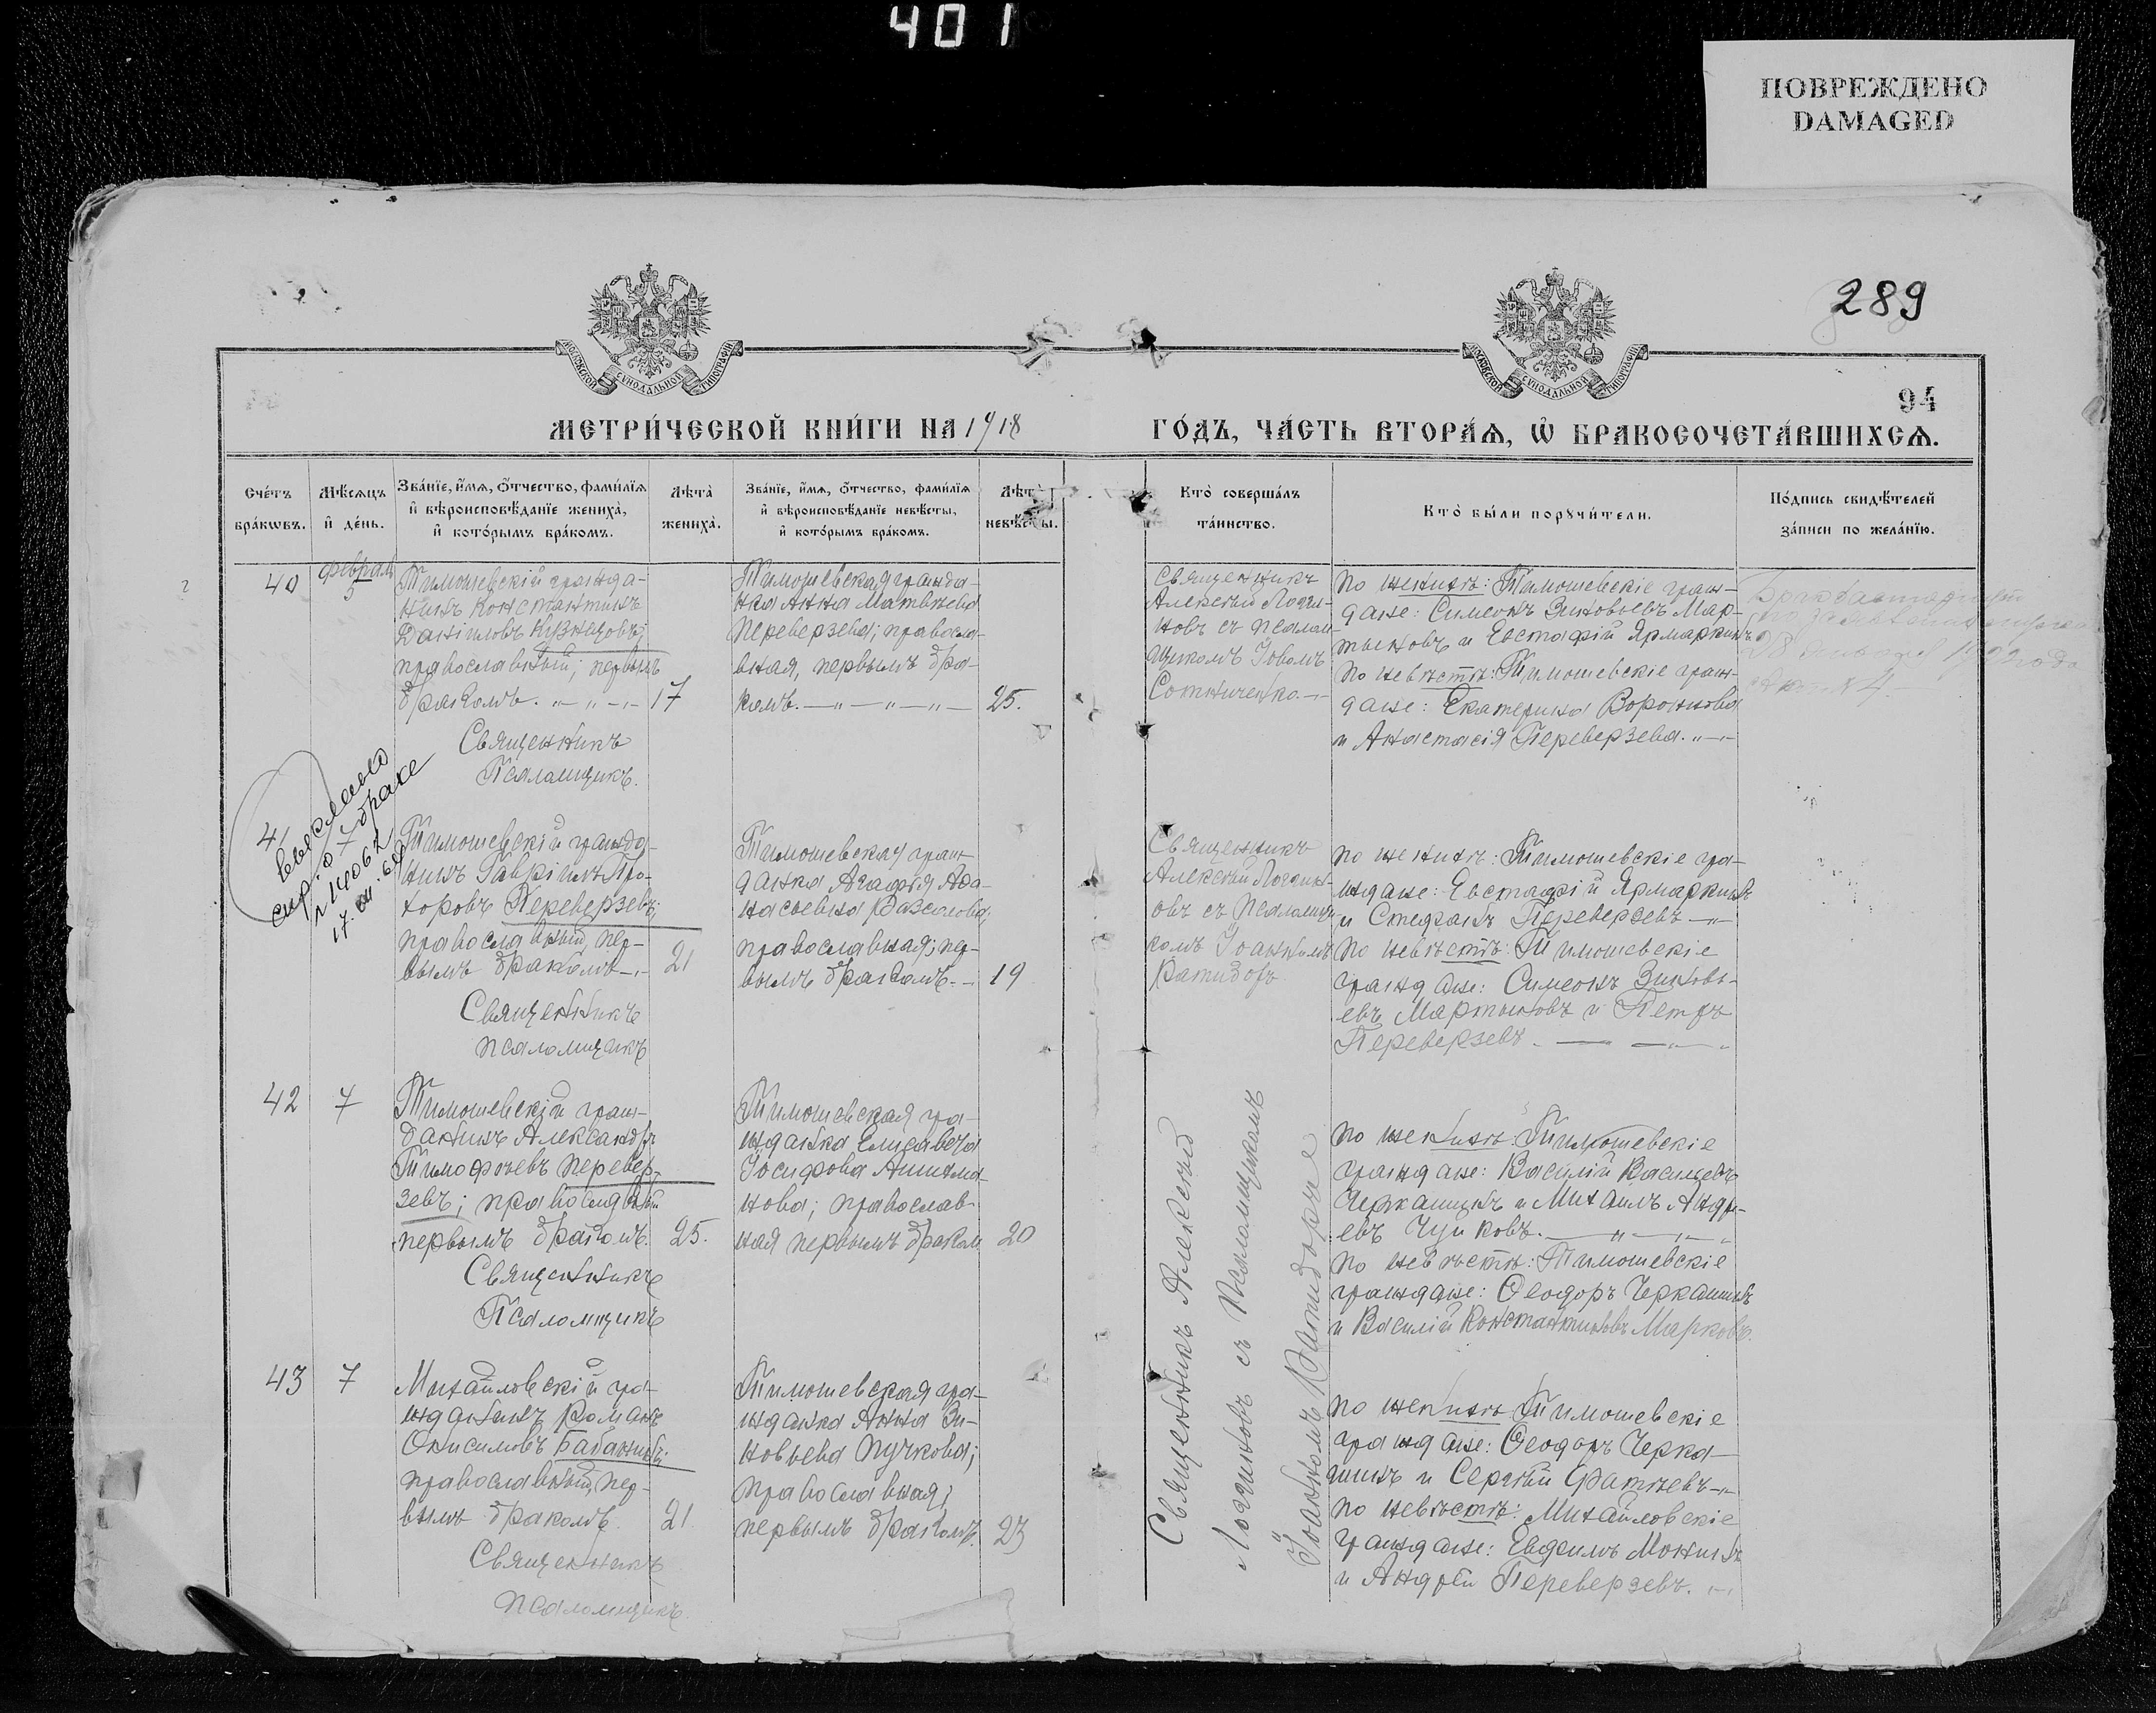 401
ПОВРЕЖДЕНО
DAMAGED
289
МОСКОВСКОЙ СѴНОДАЛЬНОЙ ТИПОГРАФІИ
МОСКОВСКОЙ СѴНОДАЛЬНОЙ ТИПОГРАФІИ
94
МЕТРИ́ЧЕСКОЙ КНИ́ГИ НА 1918
ГО́ДЪ, ЧА́СТЬ ВТОРА́Ѧ, Ѡ҆ БРАКОСОЧЕТА́ВШИХСѦ.
Сче́тъ
бра́кѡвъ.
Мѣ́сяцъ
и҆ де́нь.
Зва́нїе, и҆́мѧ, ѻ҆́тчество, фами́лїѧ
и҆ вѣроисповѣ́данїе жениха̀,
и҆ кото́рымъ бра́комъ.
Лѣта̀
жениха̀.
Зва́нїе, и҆́мѧ, ѻ҆́тчество, фами́лїѧ
и҆ вѣроисповѣ́данїе невѣ́сты,
и҆ кото́рымъ бра́комъ.
Лѣта̀
невѣ́сты.
Кто̀ соверша́лъ
та́инство.
Кто̀ бы́ли порꙋчи́тели.
По́дпись свидѣ́телей
за́писи по жела́нїю.
40
Февраль
5
Тимошевскій гражда-
нинъ Константинъ
Даніиловъ Кузнецовъ;
православный; первымъ
бракомъ. 17
Священникъ
Псаломщикъ.
Тимошевская гражда-
нка Анна Матвѣева
Переверзева; правосла-
вная, первымъ бра-
комъ. 25.
Священникъ
Алексѣй Логви-
новъ съ псалом-
щикомъ Іовомъ
Сотниченко.
По женихѣ: Тимошевскіе граж-
дане: Симеонъ Зиновьевъ Мар-
тыновъ и Евстафій Ярмаркинъ
По невѣстѣ: Тимошевскіе граж-
дане: Екатерина Воронкова
и Анастасія Переверзева.
Бракъ
28 1922 года
4
41
7
выслано
о браке
17. 69
Тимошевскій гражда-
нинъ Гавріилъ Про-
хоровъ Переверзевъ;
православный, пер-
вымъ бракомъ 21
Священникъ
псаломщикъ
Тимошевская граж-
данка Агафья Афа-
насьевна
православная; пер-
вымъ бракомъ. 19
Священникъ
Алексѣй Логвин-
овъ съ псаломщи-
комъ Іоанномъ
по женихѣ: Тимошевскіе гра-
ждане: Евстафій Ярмаркинъ
и Стефанъ Переверзевъ
По невѣстѣ: Тимошевскіе
граждане: Симеонъ Зиновь-
евъ Мартыновъ и Петръ
Переверзевъ.
42
7
Тимошевскій граж-
данинъ Александръ
Тимофѣевъ Перевер-
зевъ; православный
первымъ бракомъ. 25.
Священникъ
Псаломщикъ
Тимошевская гра-
жданка Елисавета
Іосифова
нова; православ-
ная первымъ браком 20
Священникъ Алексѣй
Логвиновъ съ Псаломщикомъ
Іоанномъ
по женихѣ: Тимошевскіе
граждане: Василій Васильевъ
Черкашинъ и Михаилъ Андре-
евъ Чуйковъ.
по невѣстѣ: Тимошевскіе
граждане: Ѳеодоръ Черкашинъ
и Василій Константиновъ Марковъ.
43
7
Михайловскій гра-
жданинъ Романъ
Онисимовъ
православный, пер-
вымъ бракомъ 21
Священникъ
псаломщикъ.
Тимошевская гра-
жданка Анна Зи-
новьева Пучкова;
православная;
первымъ бракомъ. 23
по женихѣ Тимошевскіе
граждане: Ѳеодоръ Черка-
шинъ и Сергѣй
по невѣстѣ: Михайловскіе
граждане: Евфимъ
и Андрей Переверзевъ.